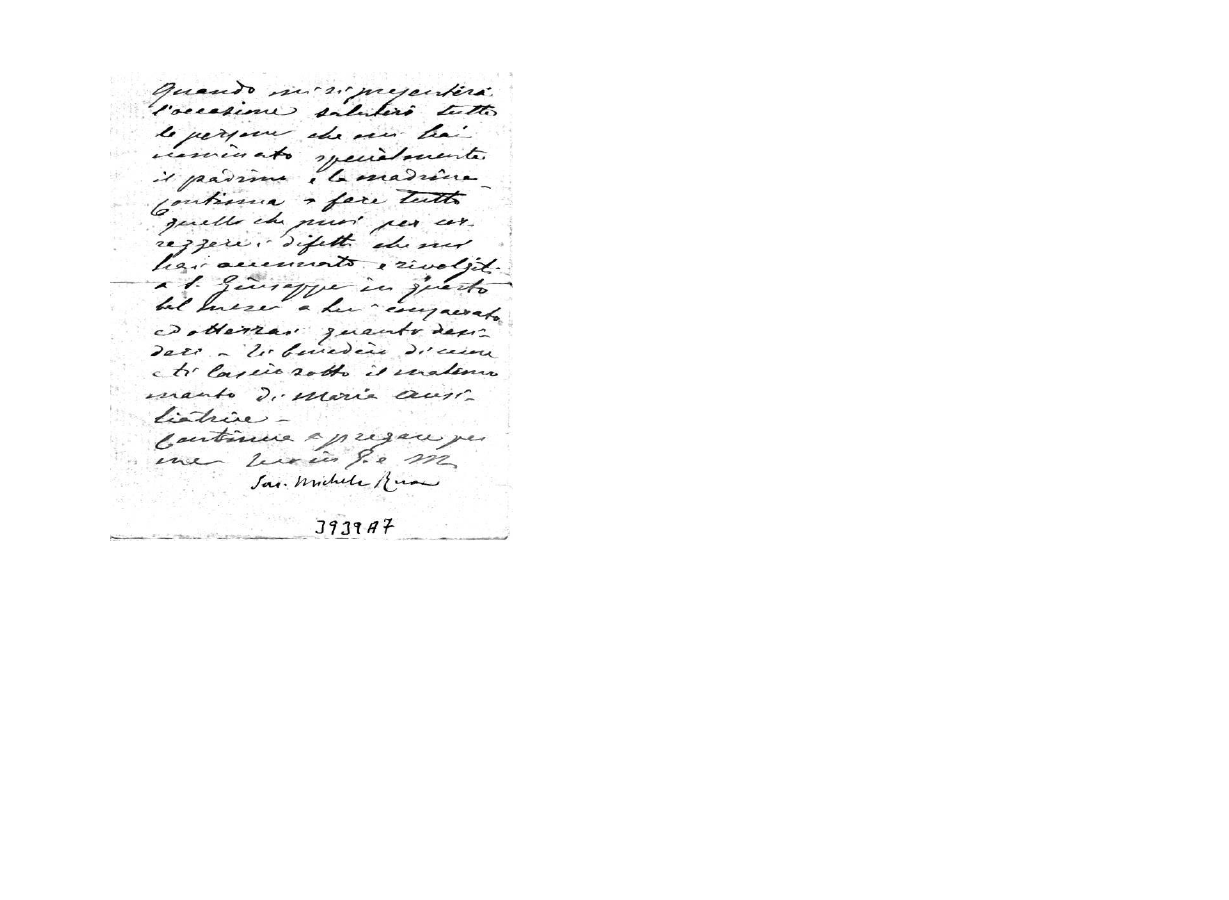 Quando mi si presenterà
l'occasione saluterò tutte
le persone che mi hai
nominato specialmente
il padrino e la madrina -
Continua a fare tutto
quello che puoi per cor-
reggere i difetti che mi
hai accennato e rivolgiti
a S. Giuseppe in questo
bel mese a lui consacrato
ed otterrai quanto desi-
deri - Ti benedico di cuore
e ti lascio sotto il materno
manto di Maria Ausi-
liatrice -
Continua a pregare per
me tuo in G. e M.
Sac. Michele Rua
3939A7